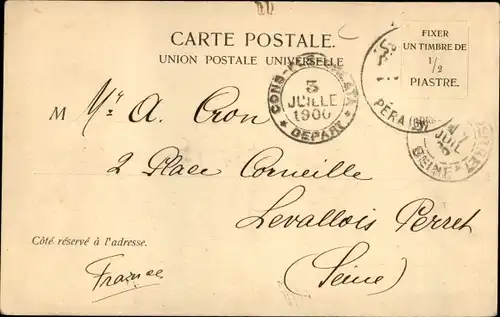 CARTE POSTALE.
UNION POSTALE UNIVERSELLE
FIXER
UN TIMBRE DE
1/2
PIASTRE.
3
JUILLE
1900
DEPART
PÉRA
JUIL
SEINE
M
A. Cron
2 Place Corneille
Levallois Perret
(Seine)
Côté réservé à l'adresse.
France